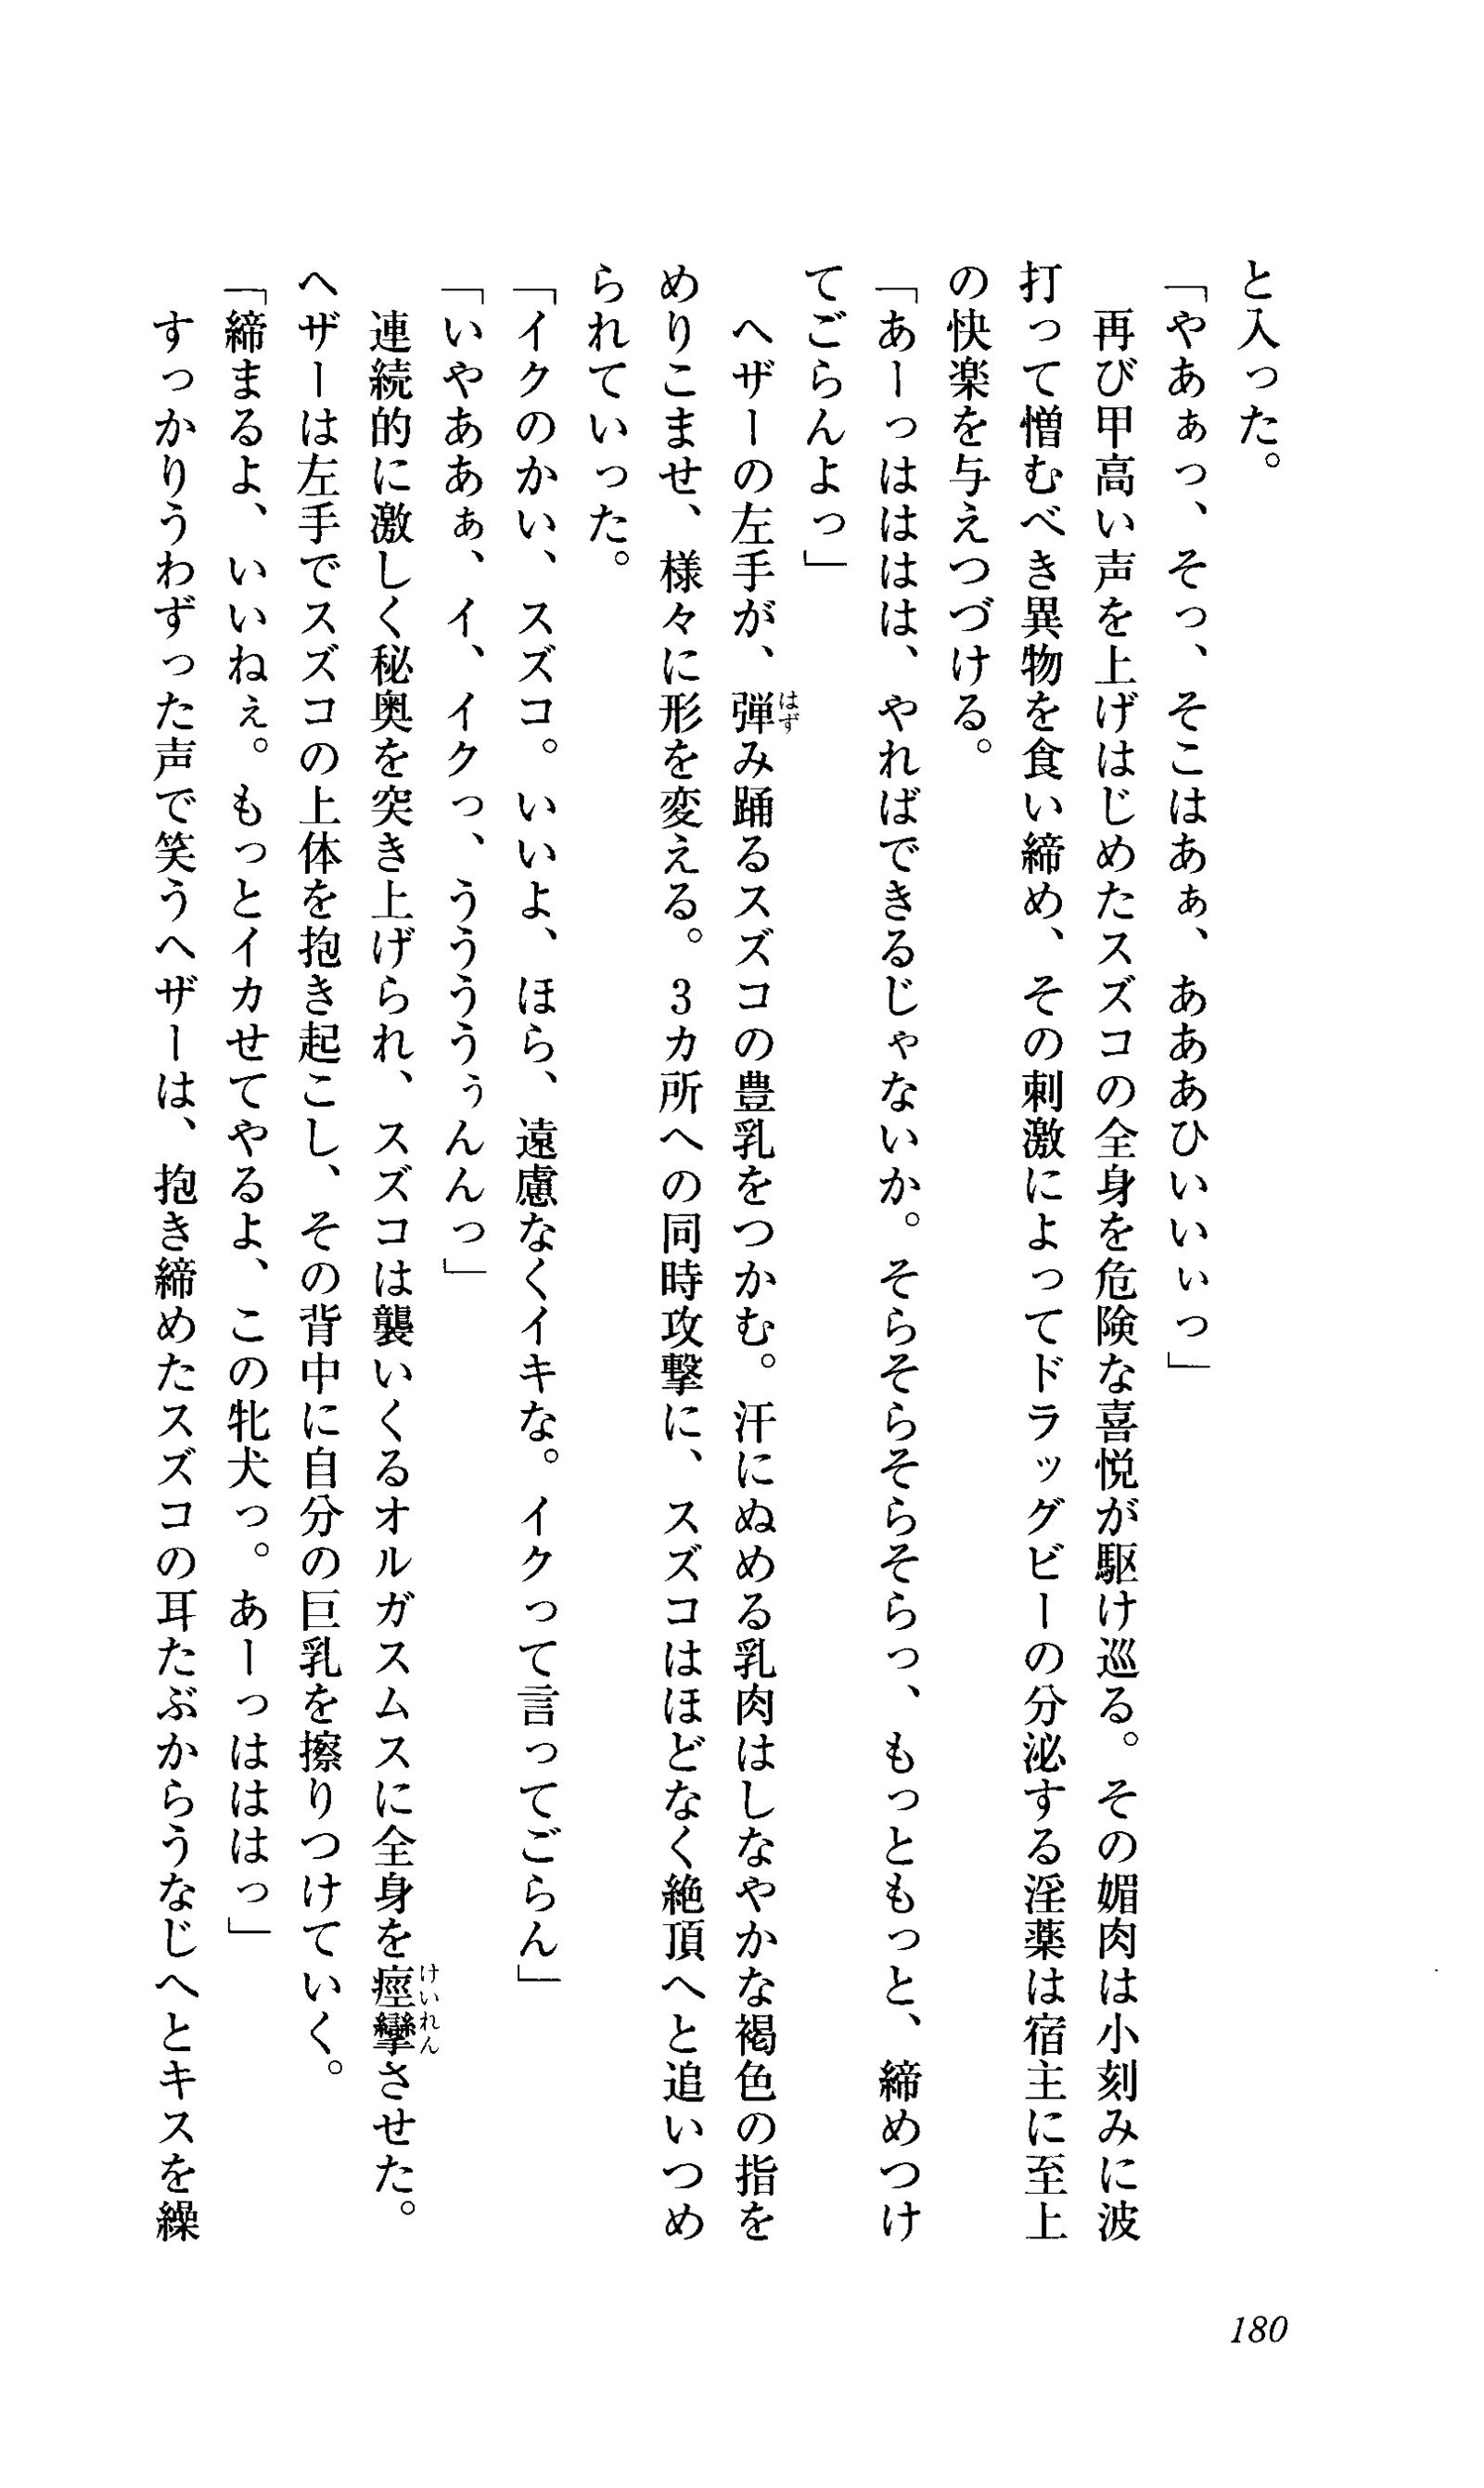 と入った。
「やあぁっ、そっ、そこはあぁ、あああひいいぃっ」
再び甲高い声を上げはじめたスズコの全身を危険な喜悦が駆け巡る。その媚肉は小刻みに波
打って憎むべき異物を食い締め、その刺激によってドラッグビーの分泌する淫薬は宿主に至上
の快楽を与えつづける。
「あーっはははは、やればできるじゃないか。そらそらそらそらっ、もっともっと、締めつけ
てごらんよっ」
はず
ヘザーの左手が、弾み踊るスズコの豊乳をつかむ。汗にぬめる乳肉はしなやかな褐色の指を
めりこませ、様々に形を変える。3カ所への同時攻撃に、スズコはほどなく絶頂へと追いつめ
られていった。
「イクのかい、スズコ。いいよ、ほら、遠慮なくイキな。イクって言ってごらん」
「いやああぁ、イ、イクっ、うううううぅんんっ」
けいれん
連続的に激しく秘奥を突き上げられ、スズコは襲いくるオルガスムスに全身を痙攣させた。
ヘザーは左手でスズコの上体を抱き起こし、その背中に自分の巨乳を擦りつけていく。
「締まるよ、いいねぇ。もっとイカせてやるよ、この牝犬っ。あーっはははっ」
すっかりうわずった声で笑うヘザーは、抱き締めたスズコの耳たぶからうなじへとキスを繰
180